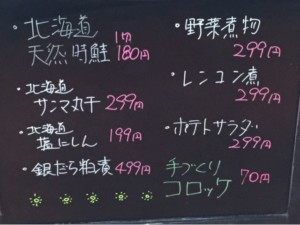 ・北海道 1切
天然時鮭 180円
・北海道
サンマ丸干 299円
・北海道
塩にしん 199円
・銀だら粕漬 499円
・野菜煮物
299円
・レンコン煮
299円
・ポテトサラダ
299円
手づくり
コロッケ 70円